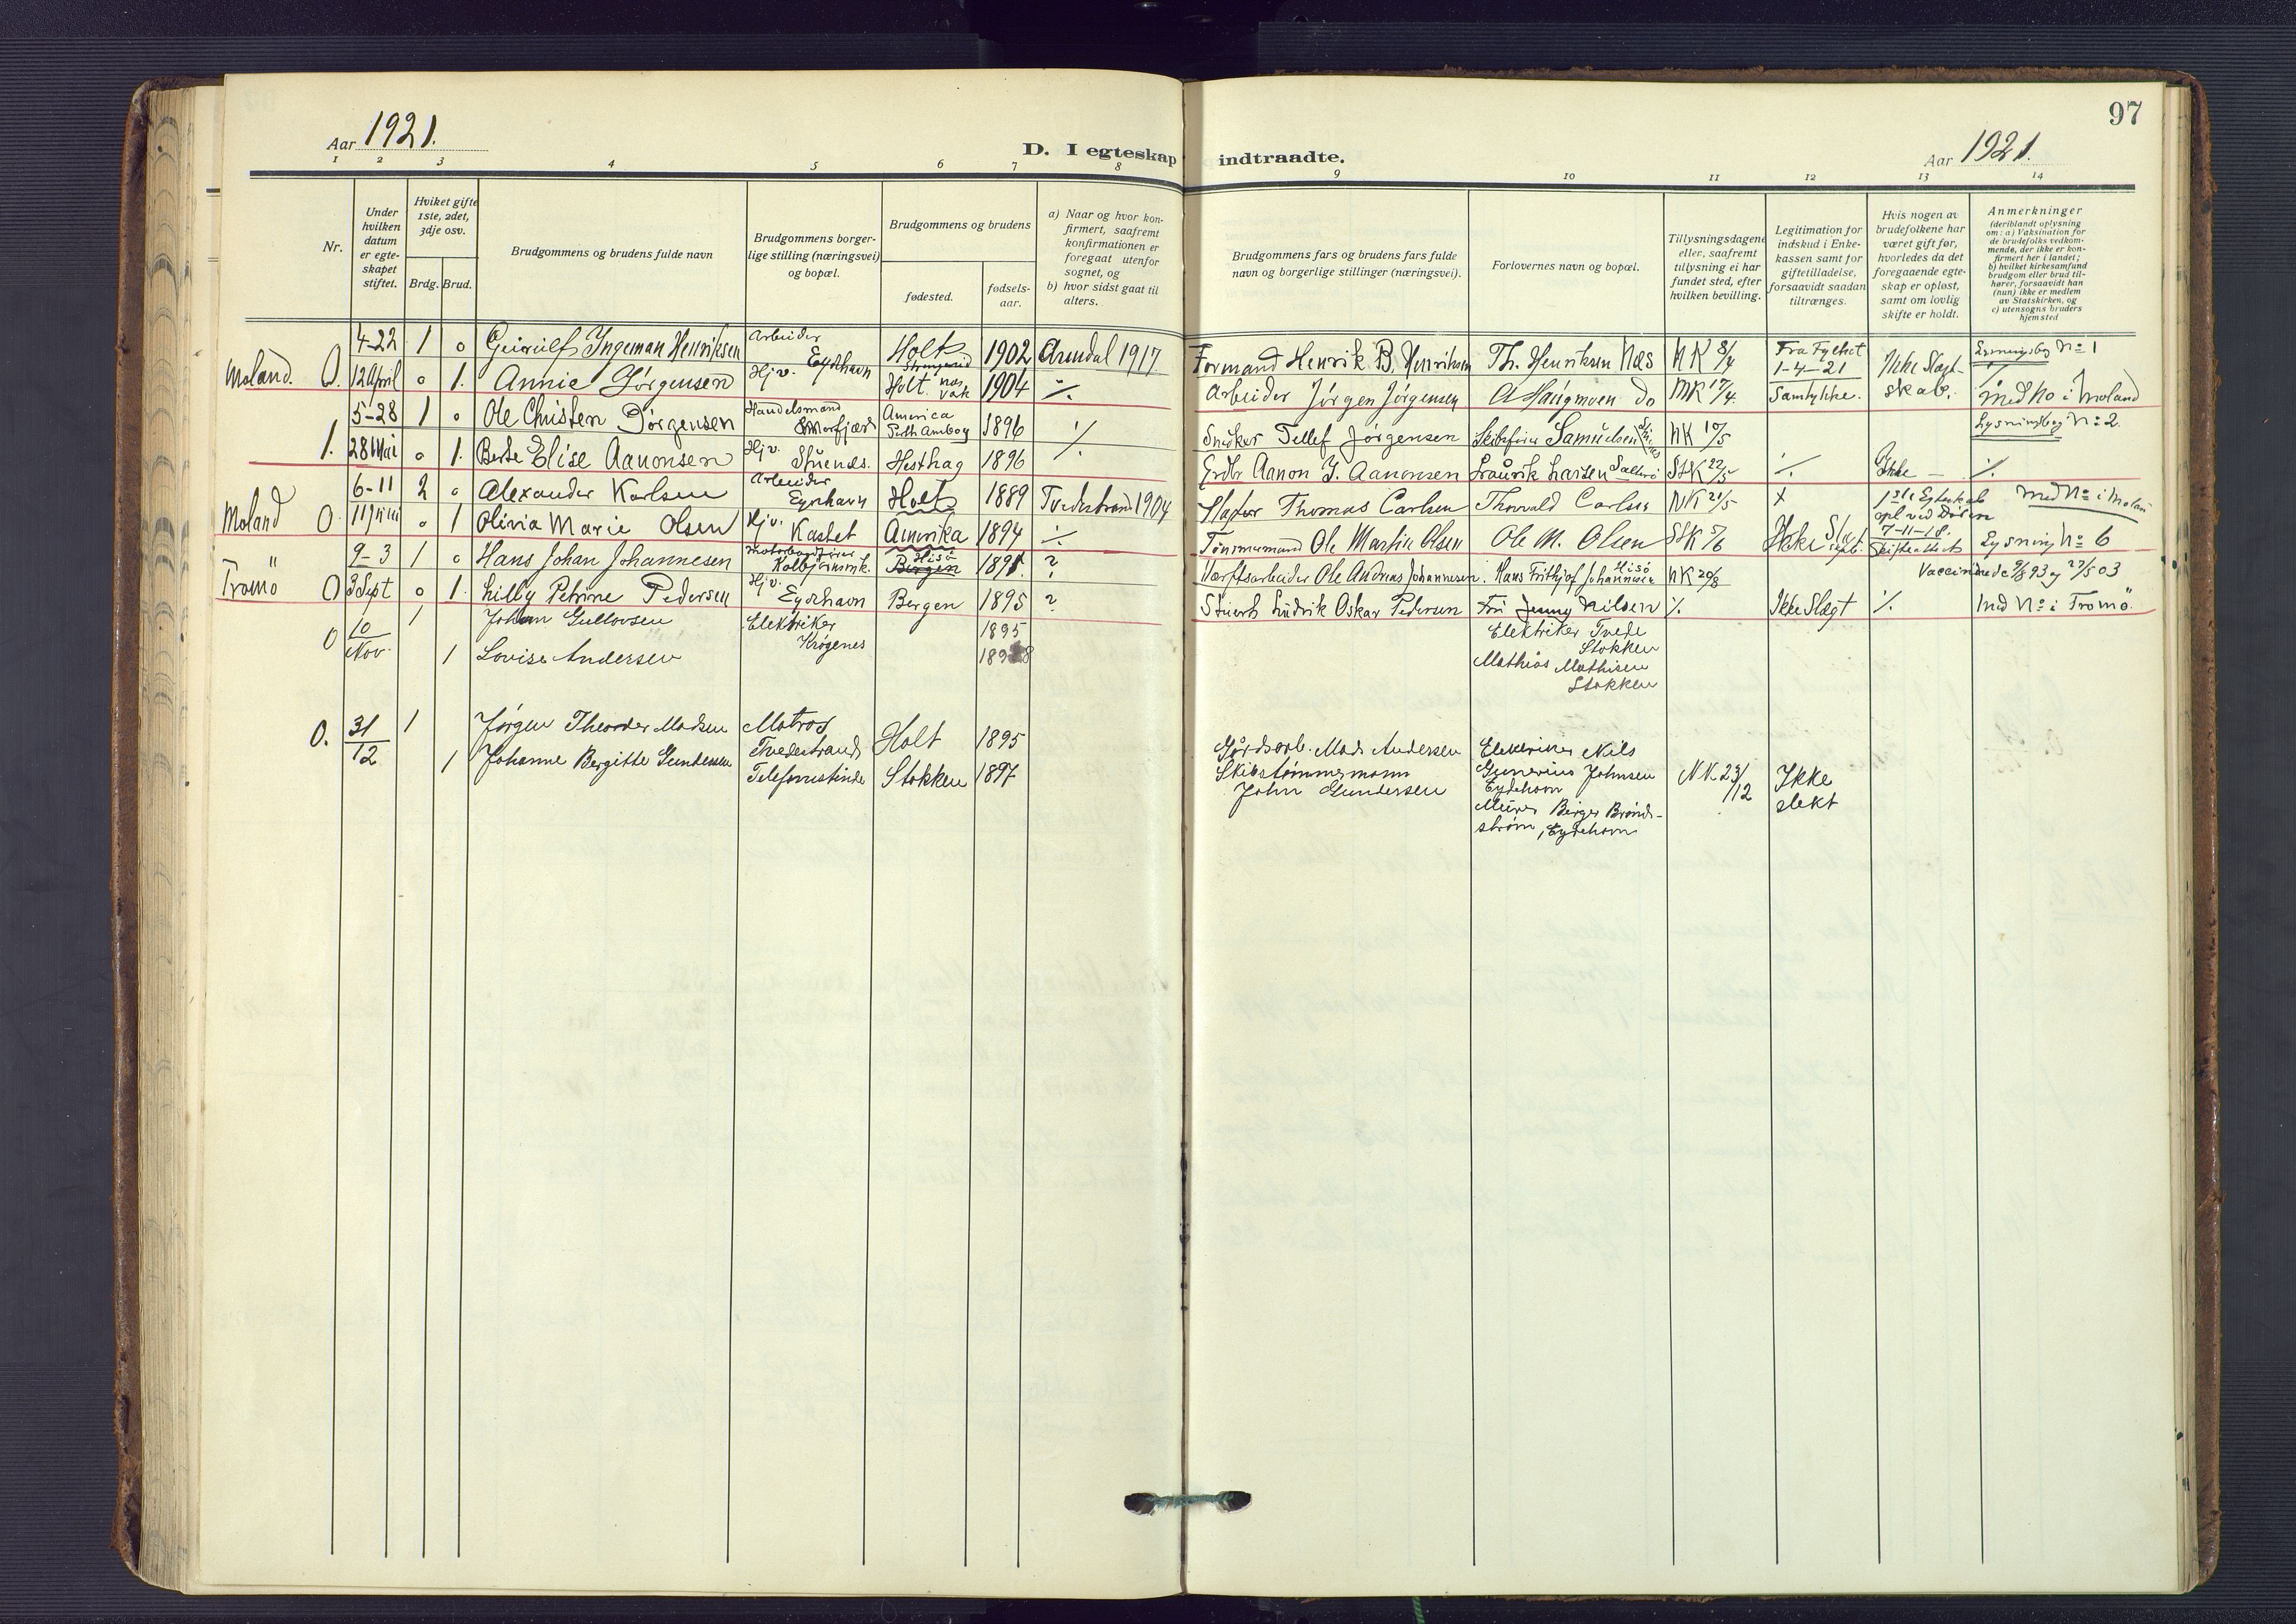 97
Aar 1921.
D. I egteskap indtraadte.
Aar 1921.
1 2 3 4 5 6 7 8 9 10 11 12 13 14
Nr.
Under hvilken datum er egteskapet stiftet.
Hviket gifte 1ste, 2det, 3dje osv.
Brdg. Brud.
Brudgommens og brudens fulde navn
Brudgommens borgerlige stilling (næringsvei) og bopæl.
Brudgommens og brudens
fødested.
fødselsaar.
a) Naar og hvor konfirmert, saafremt konfirmationen er foregaat utenfor sognet, og
b) hvor sidst gaat til alters.
Brudgommens fars og brudens fars fulde navn og borgerlige stillinger (næringsvei).
Forlovernes navn og bopæl.
Tillysningsdagene eller, saafremt tillysning ei har fundet sted, efter hvilken bevilling.
Legitimation for indskud i Enkekassen samt for giftetilladelse, forsaavidt saadan tiltrænges.
Hvis nogen av brudefolkene har været gift før, hvorledes da det foregaaende egteskap er opløst, samt om lovlig skifte er holdt.
Anmerkninger (deriblandt oplysning om: a) Vaksination for de brudefolks vedkommende, der ikke er konfirmert her i landet; b) hvilket kirkesamfund brudgom eller brud tilhører, forsaavidt han (hun) ikke er medlem av Statskirken, og c) utensogns bruders hjemsted
4-22 1 0 Geirulf Ingeman Henriksen Arbeider Eydehavn Holt 1902 Arendal 1917 Formand Henrik B. Henriksen Th. Henriksen Næs NK 8/4 Fra Fylket 1-4-21 Ikke Slægtskab. Lysningsbog No 1
Moland. 0. 12 April 0 1. Annie Jørgensen Hjv. Holt. 1904 ./. Arbeider Jørgen Jørgensen A Haugmoen do MK 17/4. Samtykke. med No i Moland
5-28 1 0 Ole Christen Jørgensen Handelsmand America Perth Amboy 1896 ./. Snedker Tellef Jørgensen Samuelsen NK 15/5 Lysningsbog No 2.
1. 28 Mai 0 1. Berte Elise Aanonsen Hjv. Stuenes. Hesthag 1896 Grdbr Aanon J. Aanonsen Laurik Larsen StK 22/5 ./. Ikke — ./.
6-11 2 0 Alexander Karlsen Arbeider Eydehavn Holt 1889 Tvedestrand 1904 Slagter Thomas Carlsen Thorvald Carlsen NK 21/5 x 1ste Egteskab opl ved Døden 7-11-18. Skifteattest med No i Moland
Moland 0. 11 Juni 0 1 Olivia Marie Olsen Hjv. Kastet Amerika 1894 ./. Tømmermand Ole Martin Olsen Ole M. Olsen StK 5/6 Ikke Slægtskab. Lysning No 6
9-3 1 0 Hans Johan Johannesen Kolbjørnsvik. Hisö Bergen 1891. ? Værftsarbeider Ole Andreas Johannesen. Hans Frithjof Johannesen Hisö NK 20/8 Vaccinerede 9/8 93 og 27/5 03
Tromö 0 3 Sept 0 1. Lilly Petrine Pedersen Hjv. Eydehavn Bergen 1895 ? Stuert Ludvik Oskar Pedersen Fru Jenny Nilsen ./. Ikke Slægt ./. med No i Tromö.
0 10/Nov. 1 Johan Gullovsen Elektriker Krøgenes 1895 Elektriker Tvede Stokken
1 Lovise Andersen 1898 Mathias Mathisen Stokken
0. 31/12 1 Jørgen Theodor Madsen Matros Tvedestrand Holt 1895 Gårdsarb. Mads Andersen Elektriker Nils Gunerius Johnsen Eydehavn NK 23/12 Ikke slekt
1 Johanne Bergitte Gundersen Telefonistinde Stokken 1897 Skibstømmermann John Gundersen Murer Birger Brøndstrøm, Eydehavn